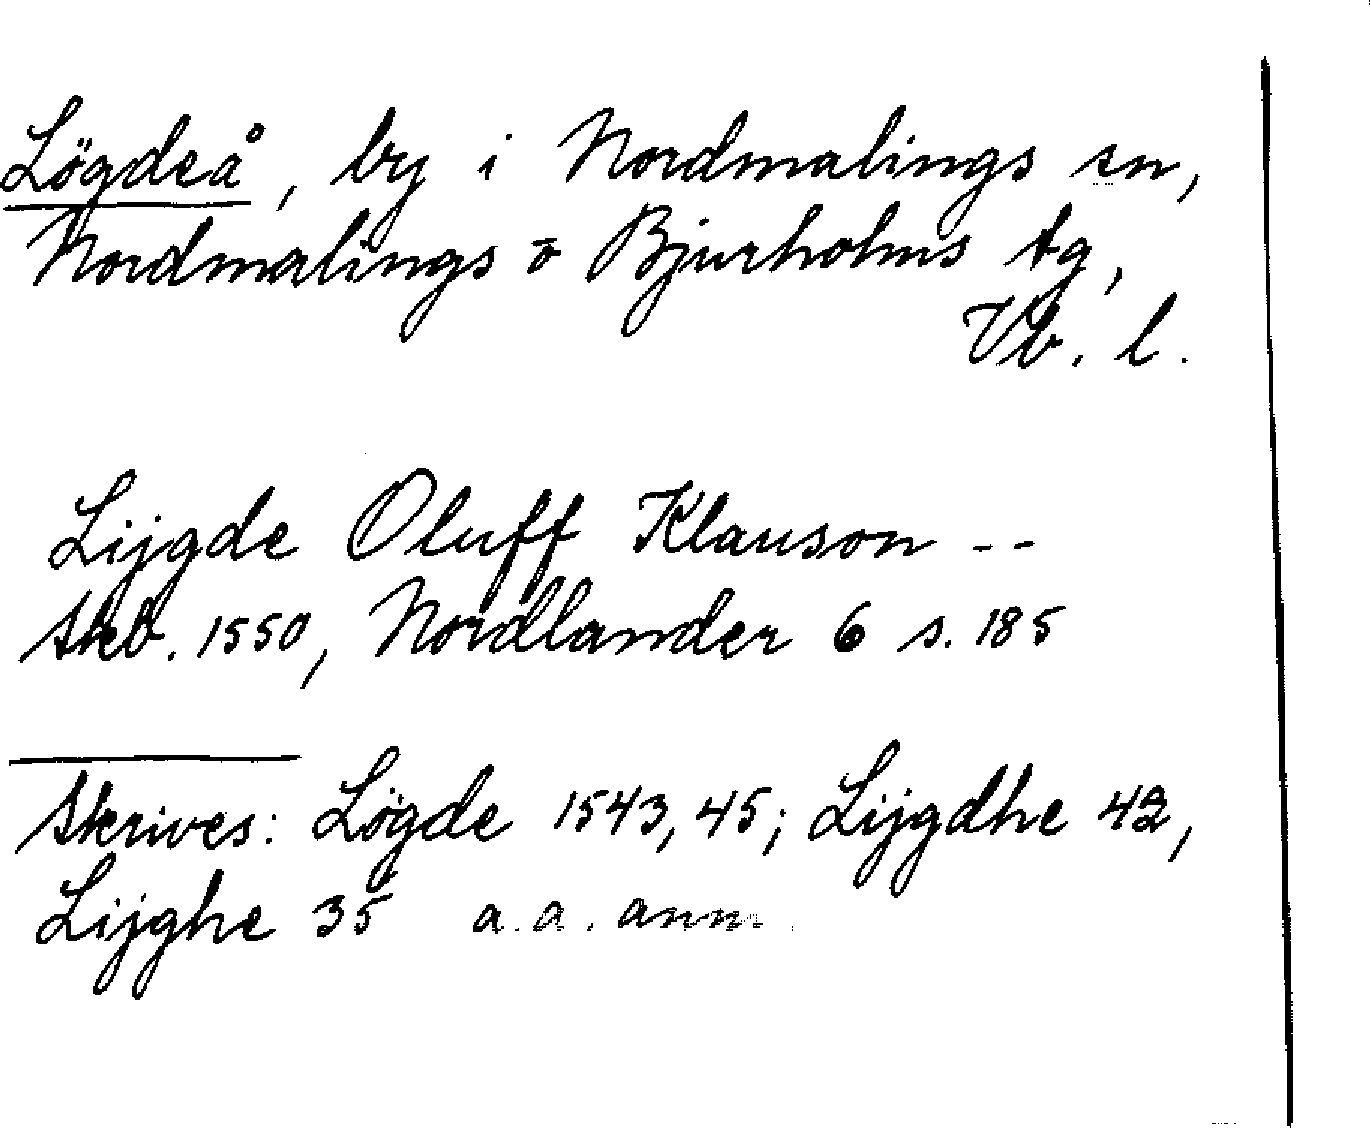 Lögdeå, by i Nordmalings sn,
Nordmalings o Bjurholms tg,
Vb. l.
Lijgde Oluff Klauson --
Skb. 1550, Nordlander 6 s. 185
Skrives: Lögde 1543, 45; Lijgdhe 42,
Lijghe 35 a. a. anm.